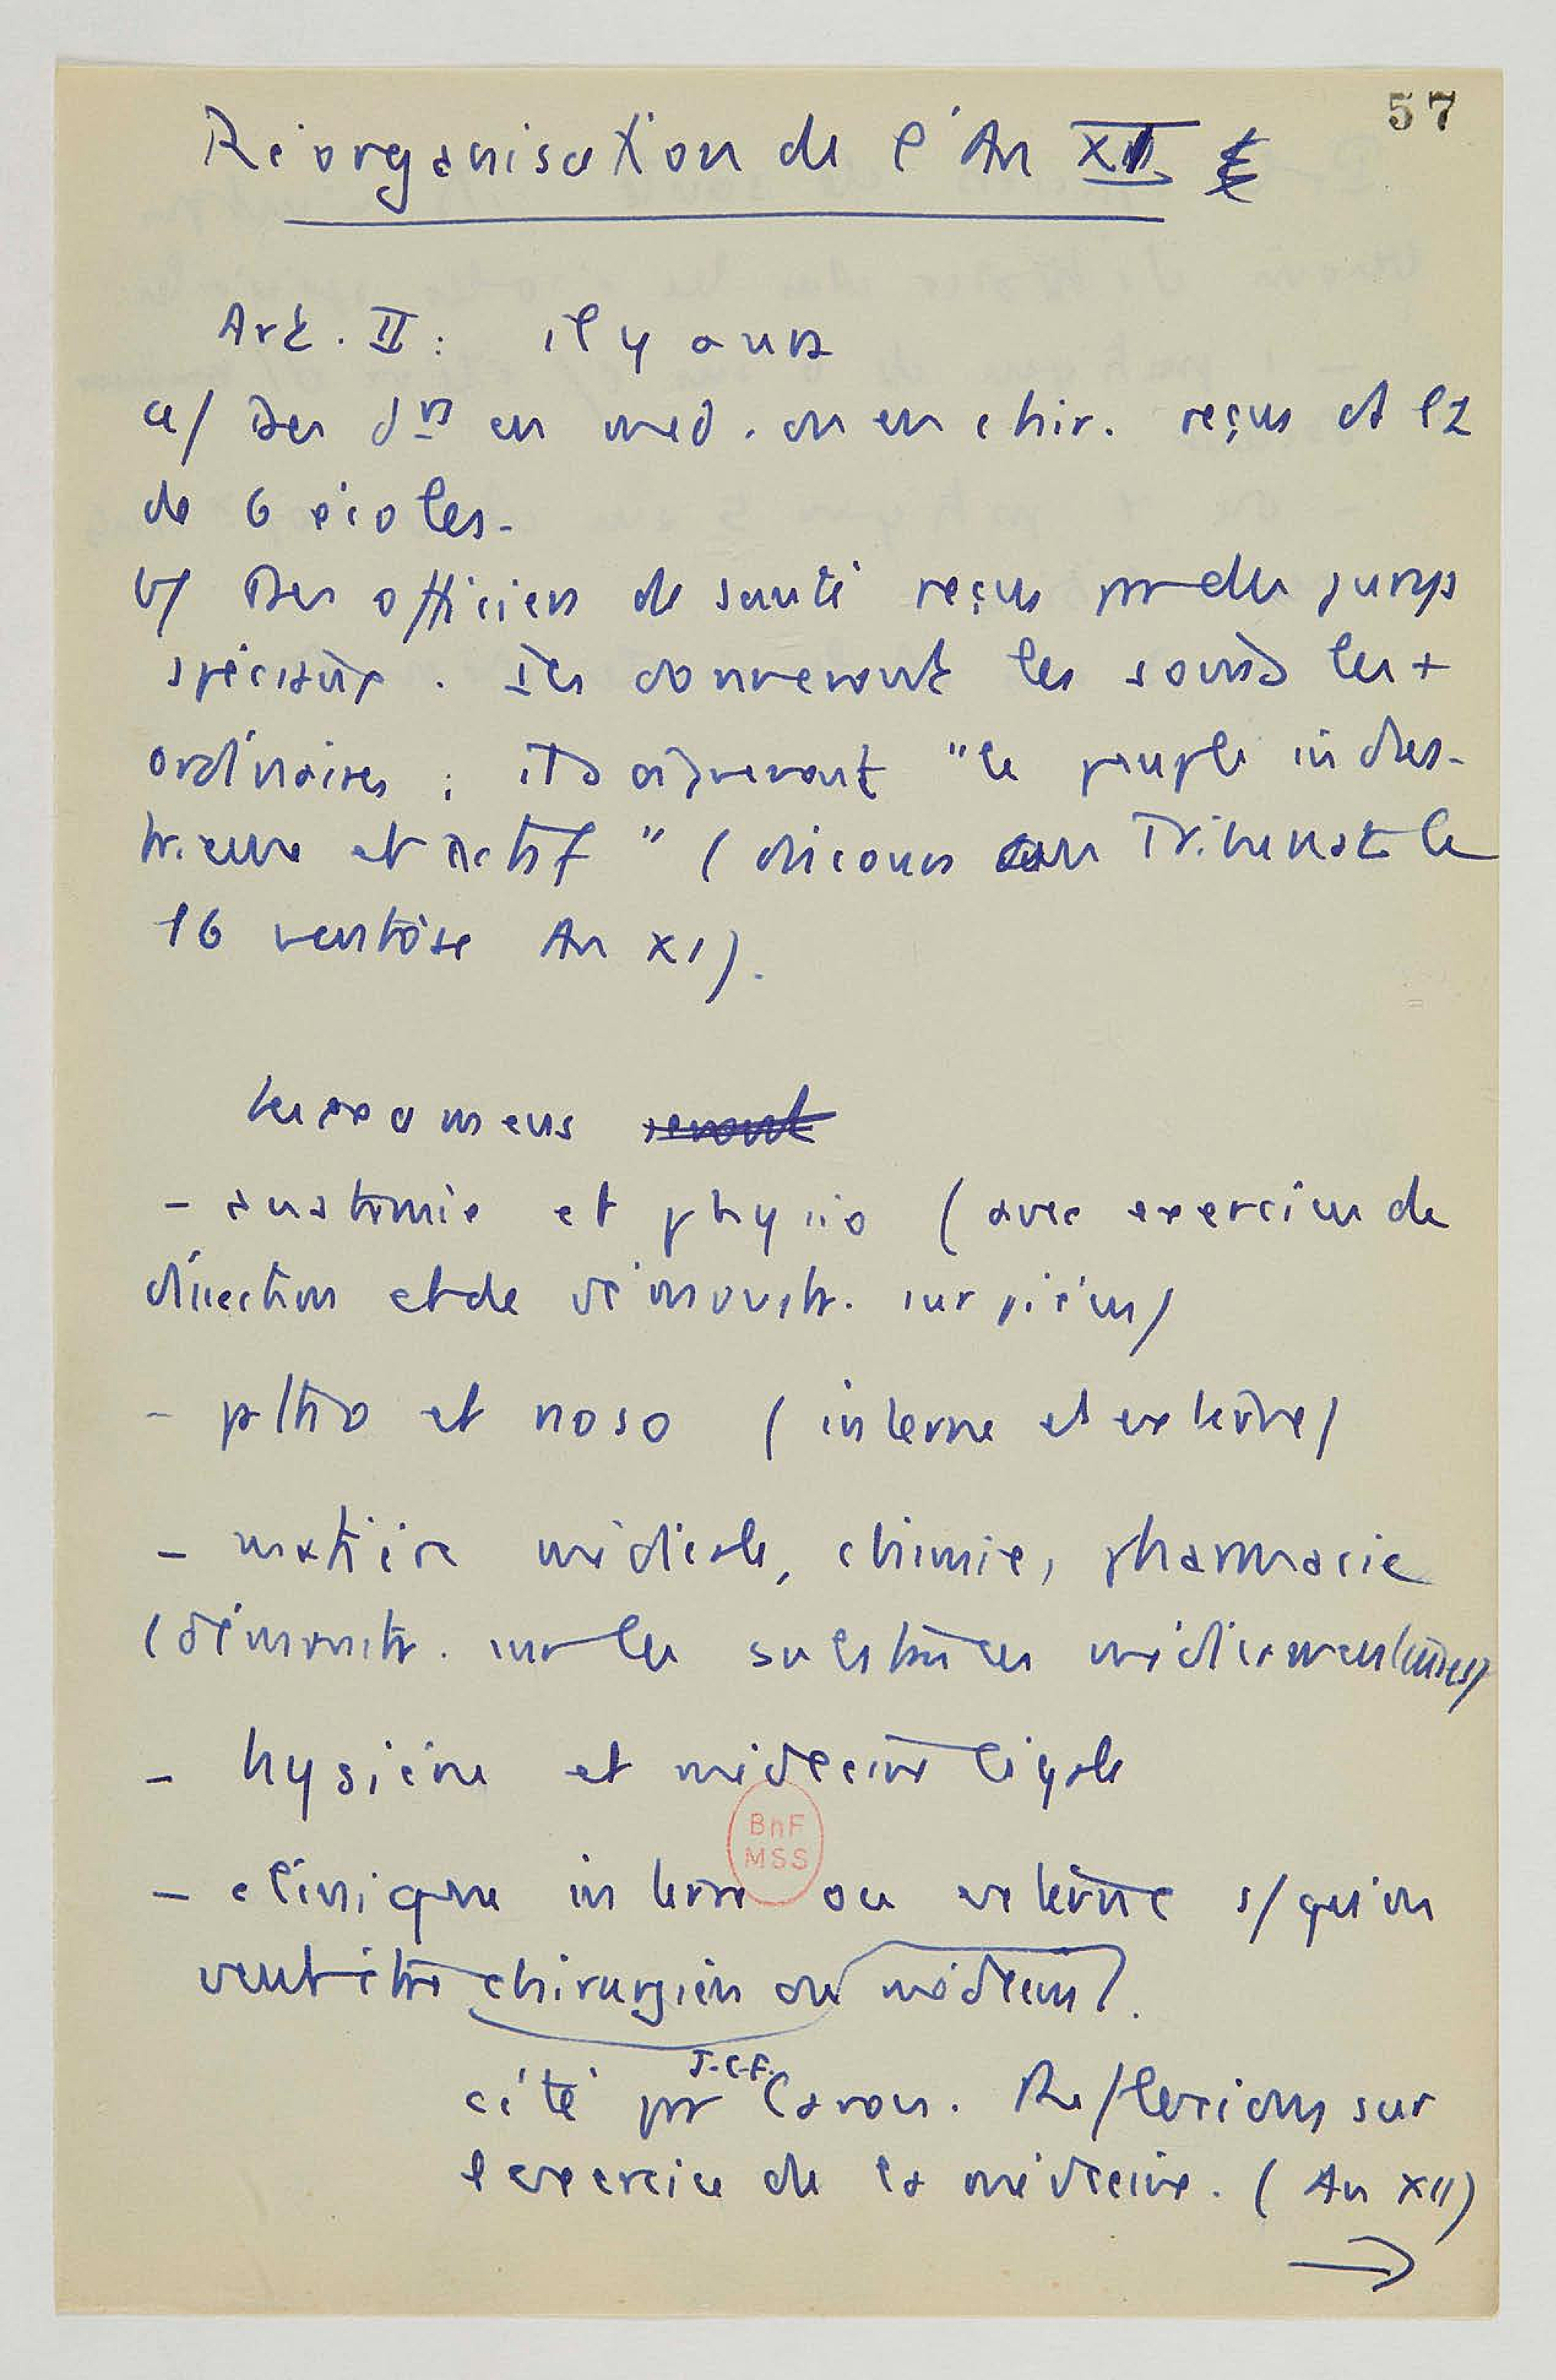 57
Réorganisation de l'An XII
Art. II : il y aura
a/ Des drs en med. ou en chir. reçus ds l 1
de 6 écoles.
b/ Des officiers de santé reçus par des jurys
spéciaux. Ils donneront les soins les +
ordinaires ; ils soigneront "le peuple indus-
trieux et actif" (discours au Tribunat le
16 ventôse An XI).
les examens
- anatomie et physio (avec exercices de
dissection et de démonstr. sur pièces)
- patho et noso (interne et externe)
- matière médicale, chimie, pharmacie
(démonstr. sur les substances médicamenteuses)
- hygiène et médecine légale
- clinique interne ou externe s/ qu'on
veut être chirurgien ou médecin).
cité par J.C.F. Caron. Réflexions sur
l'exercice de la médecine. (An XII)
→
BnF
MSS